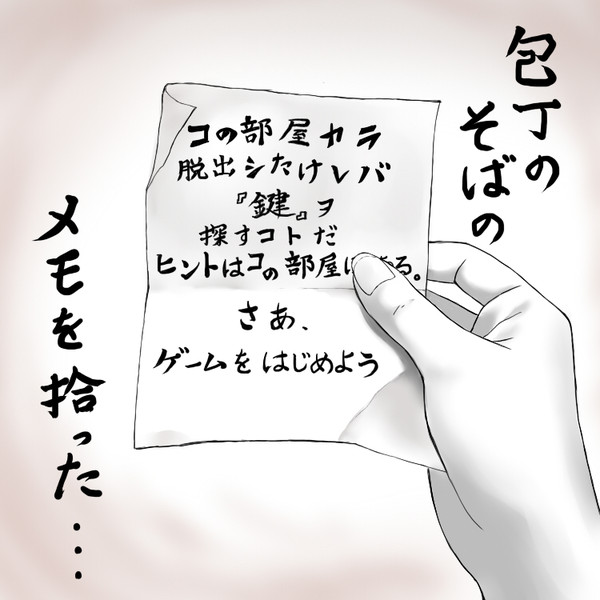 包丁の
そばの
コの部屋カラ
脱出シたけレバ
『鍵』ヲ
探すコトだ
ヒントはコの部屋に る。
さあ、
ゲームをはじめよう
メモを拾った・・・